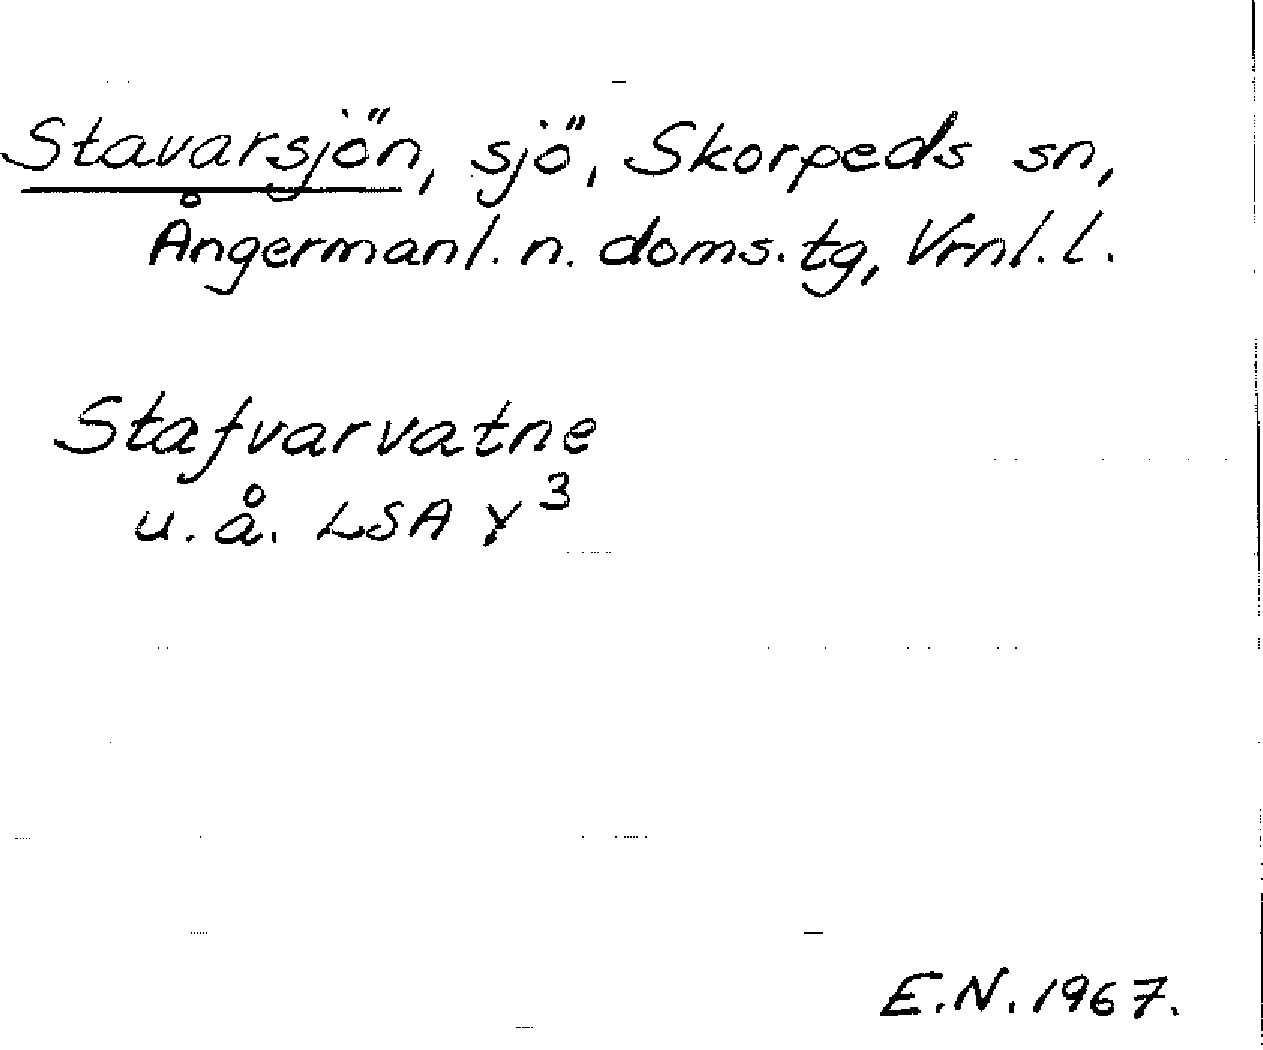 Stavarsjön, sjö, Skorpeds sn,
Ångermanl. n. doms. tg, Vrnl. l.
Stafvarvatne
u. å. LSA Y³
E.N. 1967.